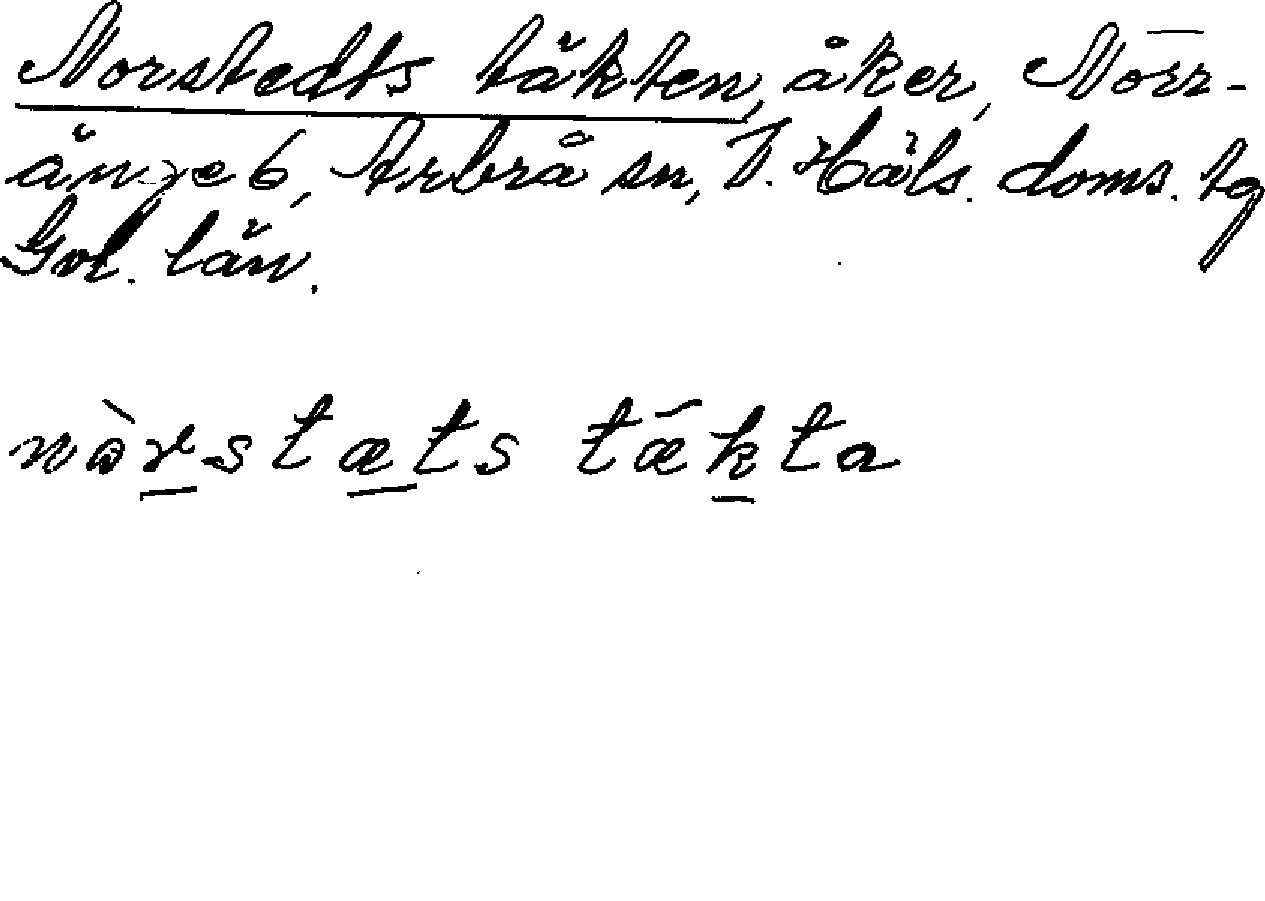 Norstedts täkten, åker, Norr-
änge 6, Arbrå sn, V. Häls. doms. tg
Gvl. län.
nòrstæts tǽkta